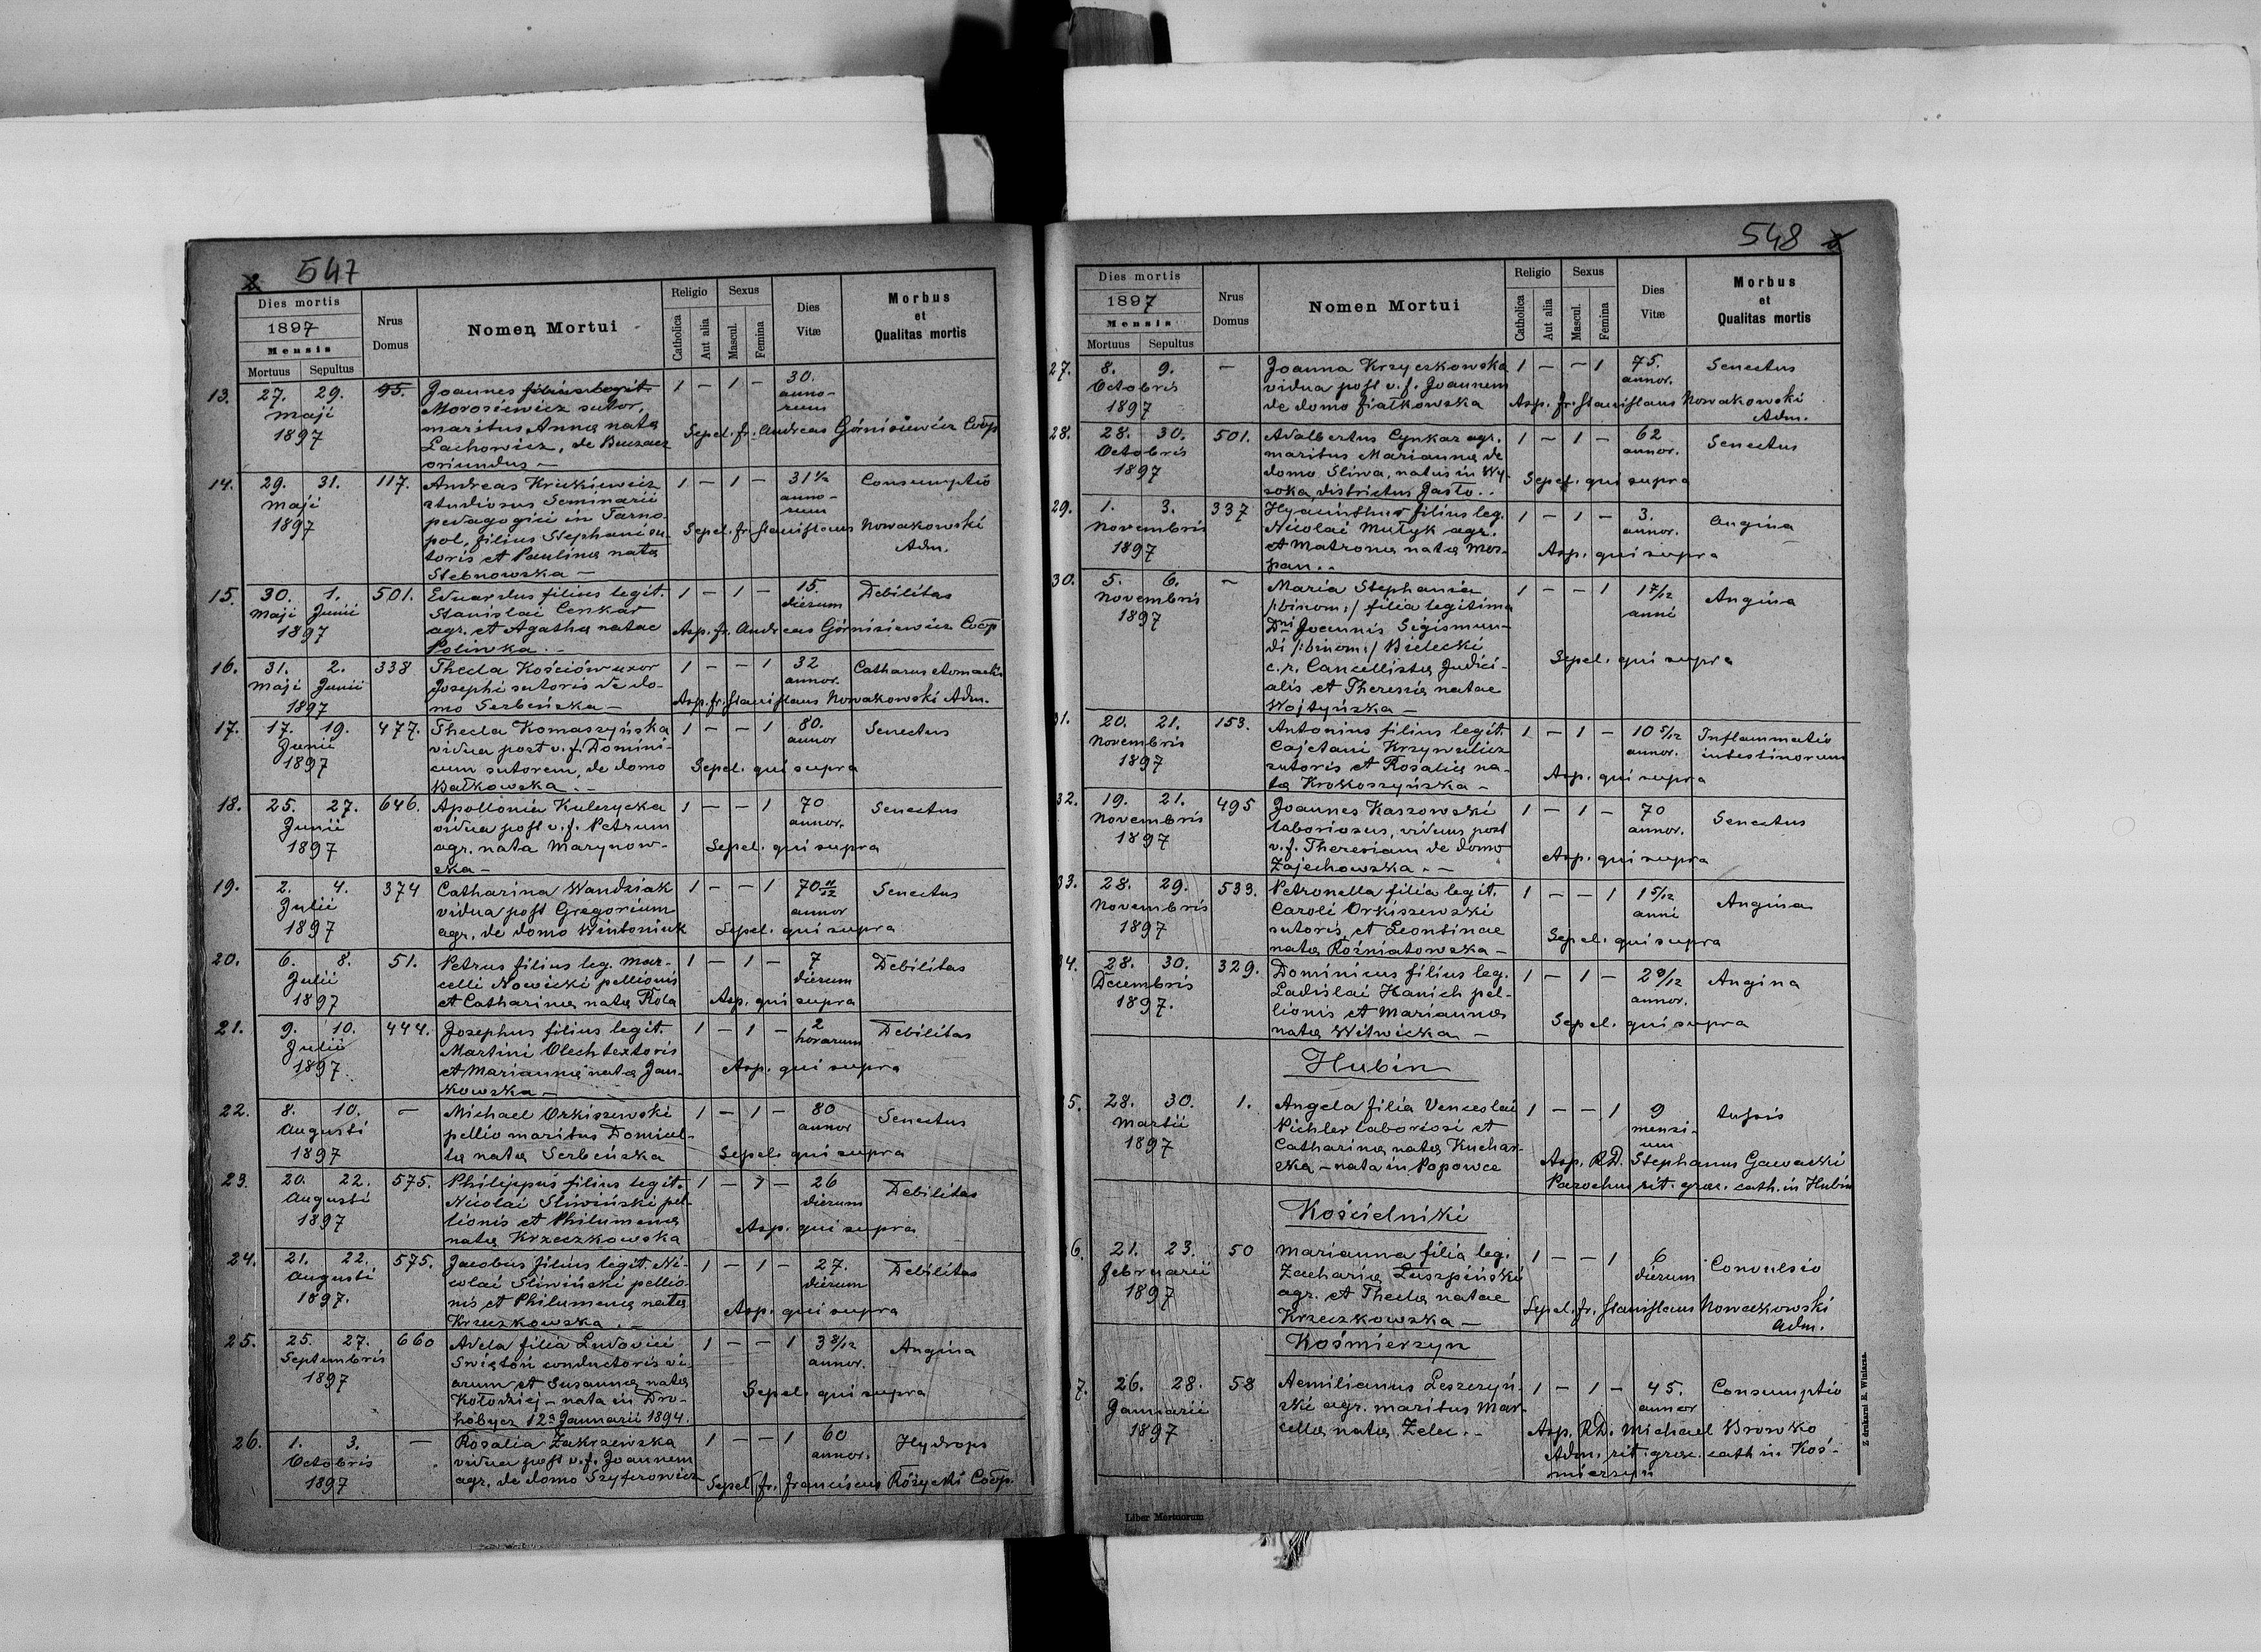 547
Dies mortis
1897
Mensis
Mortuus Sepultus
Nrus Domus
Nomen Mortui
Religio
Catholica
Aut alia
Sexus
Mascul.
Femina
Dies Vitæ
Morbus et Qualitas mortis
13. 27. 29. 95. Joannes filius legit. 1 – 1 – 30.
maji Morosiewicz sutor, anno-
1897 maritus Annæ natæ rum
Lachowicz, de Buczacz Sepel. fr. Andreas Górnisiewicz Coop
oriundus –
14. 29. 31. 117. Andreas Krukiewicz 1 – 1 – 31 1/2 Consumptio
maji studiosus Seminarii anno-
1897 pedagogici in Tarno- rum
pol, filius Stephani su- Sepel. fr. Stanislaus Nowakowski
toris et Paulinæ natæ Adm.
Stebnowska –
15. 30. 1. 501. Eduardus filius legit. 1 – 1 – 15. Debilitas
Maji Junii Stanislai Cenkar dierum
1897 agr. et Agathæ natae Asp. fr. Andreas Górnisiewicz Coop
Poliwka. –
16. 31. 2. 338 Thecla Kościów uxor 1 – – 1 32 Catharus stomachi
Maji Junii Josephi sutoris de do- annor.
1897 mo Serbeńska – Asp. fr. Stanislaus Nowakowski Adm.
17. 17. 19. 477. Thecla Komaszyńska 1 – – 1 80. Senectus
Junii vidua post v. f. Domini- annor
1897 cum sutorem, de domo Sepel. qui supra
Bałkowska. –
18. 25. 27. 646. Apollonia Kulczycka 1 – – 1 70 Senectus
Junii vidua post v. f. Petrum annor.
1897 agr. nata Marynow- Sepel. qui supra
ska –
19. 2. 4. 374 Catharina Wandziak 1 – – 1 70 11/12 Senectus
Julii vidua post Gregorium annor
1897 agr. de domo Wintoniuk Sepel. qui supra
20. 6. 8. 51. Petrus filius leg. Mar- 1 – 1 – 7 Debilitas
Julii celli Nowicki pellionis dierum
1897 et Catharinæ natæ Rola Asp. qui supra
21. 9. 10. 444. Josephus filius legit. 1 – 1 – 2 Debilitas
Julii Martini Olech textoris horarum
1897 et Mariannæ natæ Jan- Asp. qui supra
kowska –
22. 8. 10. – Michael Orkiszewski 1 – 1 – 80 Senectus
Augusti pellio maritus Domicel- annor
1897 læ natæ Serbeńska Sepel. qui supra
23. 20. 22. 575. Philippus filius legit. 1 – 1 – 26 Debilitas
Augusti Nicolai Śliwiński pel- dierum
1897 lionis et Philumenæ Asp. qui supra
natæ Krzeczkowska
24. 21. 22. 575. Jacobus filius legit. Ni- 1 – 1 – 27. Debilitas
Augusti colai Śliwiński pellio- dierum
1897. nis et Philumenæ natæ Asp. qui supra
Krzeczkowska. –
25. 25. 27. 660 Adela filia Ludovici 1 – – 1 3 8/12 Angina
Septembris Świstoń conductoris vi- annor.
1897 arum et Susannæ natæ
Kołodziej – nata in Dro- Sepel. qui supra
hobycz 12a Januarii 1894.
26. 1. 3. – Rosalia Zakrzewska 1 – – 1 60 Hydrops
Octobris vidua post v. f. Joannem annor.
1897 agr. de domo Szyferowicz Sepel fr. Franciscus Różycki Coop.
548
Dies mortis
1897
Mensis
Mortuus Sepultus
Nrus Domus
Nomen Mortui
Religio
Catholica
Aut alia
Sexus
Mascul.
Femina
Dies Vitæ
Morbus et Qualitas mortis
27. 8. 9. – Joanna Krzyczkowska 1 – – 1 75. Senectus
Octobris vidua post v. f. Joannem annor.
1897 de domo Fiałkowska Asp. fr. Stanislaus Nowakowski
Adm.
28. 28. 30. 501. Adalbertus Cynkar agr. 1 – 1 – 62 Senectus
Octobris maritus Mariannæ de annor.
1897 domo Śliwa, natus in Wy- Sepel. qui supra
soka, districtus Jasło. .
29. 1. 3. 337 Hyacinthus filius leg. 1 – 1 – 3. Angina
Novembris Nicolai Mułyk agr. annor.
1897 et Matronæ natæ Mos- Asp. qui supra
pan. .
30. 5. 6. – Maria Stephania 1 – – 1 1 7/12 Angina
Novembris /:binom:/ filia legitima anni
1897 Dni Joannis Sigismun-
di /:binom:/ Bielecki Sepel. qui supra
c. r. Cancellistæ Judici-
alis et Theresiæ natae
Wojtyńska –
31. 20. 21. 153. Antonius filius legit. 1 – 1 – 10 5/12 Inflammatio
Novembris Cajetani Krzywulicz annor. intestinorum
1897 sutoris et Rosaliæ na- Asp. qui supra
tæ Krokoszyńska –
32. 19. 21. 495 Joannes Kaszowski 1 – 1 – 70 Senectus
Novembris laboriosus, viduus post annor.
1897 v. f. Theresiam de domo Asp. qui supra
Zajechowska. –
33. 28. 29. 533. Petronella filia legit. 1 – – 1 1 5/12 Angina
Novembris Caroli Orkiszewski anni
1897 sutoris, et Leontinae Sepel. qui supra
natæ Rożniatowska –
34. 28. 30. 329. Dominicus filius leg. 1 – 1 – 2 9/12 Angina
Decembris Ladislai Hanich pel- annor.
1897. lionis et Mariannæ Sepel. qui supra
natæ Witwicka –
Hubin
5. 28. 30. 1. Angela filia Venceslai 1 – – 1 9 tussis
Martii Pichler laboriosi et mensi-
1897 Catharinæ natæ Kuchar- um
ska – nata in Popowce Asp. R.D. Stephanus Gawacki
Parochus rit. grae. cath. in Hubin
Kościelniki
6. 21. 23. 50 Marianna filia leg. 1 – – 1 6 Convulsio
Februarii Zachariæ Łuszpiński dierum
1897 agr. et Theclæ natae Sepel. fr. Stanislaus Nowakowski
Krzeczkowska – Adm.
Kośmierzyn
7. 26. 28. 58 Aemilianus Leszczyń- 1 – 1 – 45. Consumptio
Januarii ski agr. maritus Mar- annor
1897 cellæ natæ Zelec. – Asp. R.D. Michael Browko
Adm. rit. grae. cath in Koś-
mierzyn
Liber Mortuorum
Z drukarni E. Winiarza.